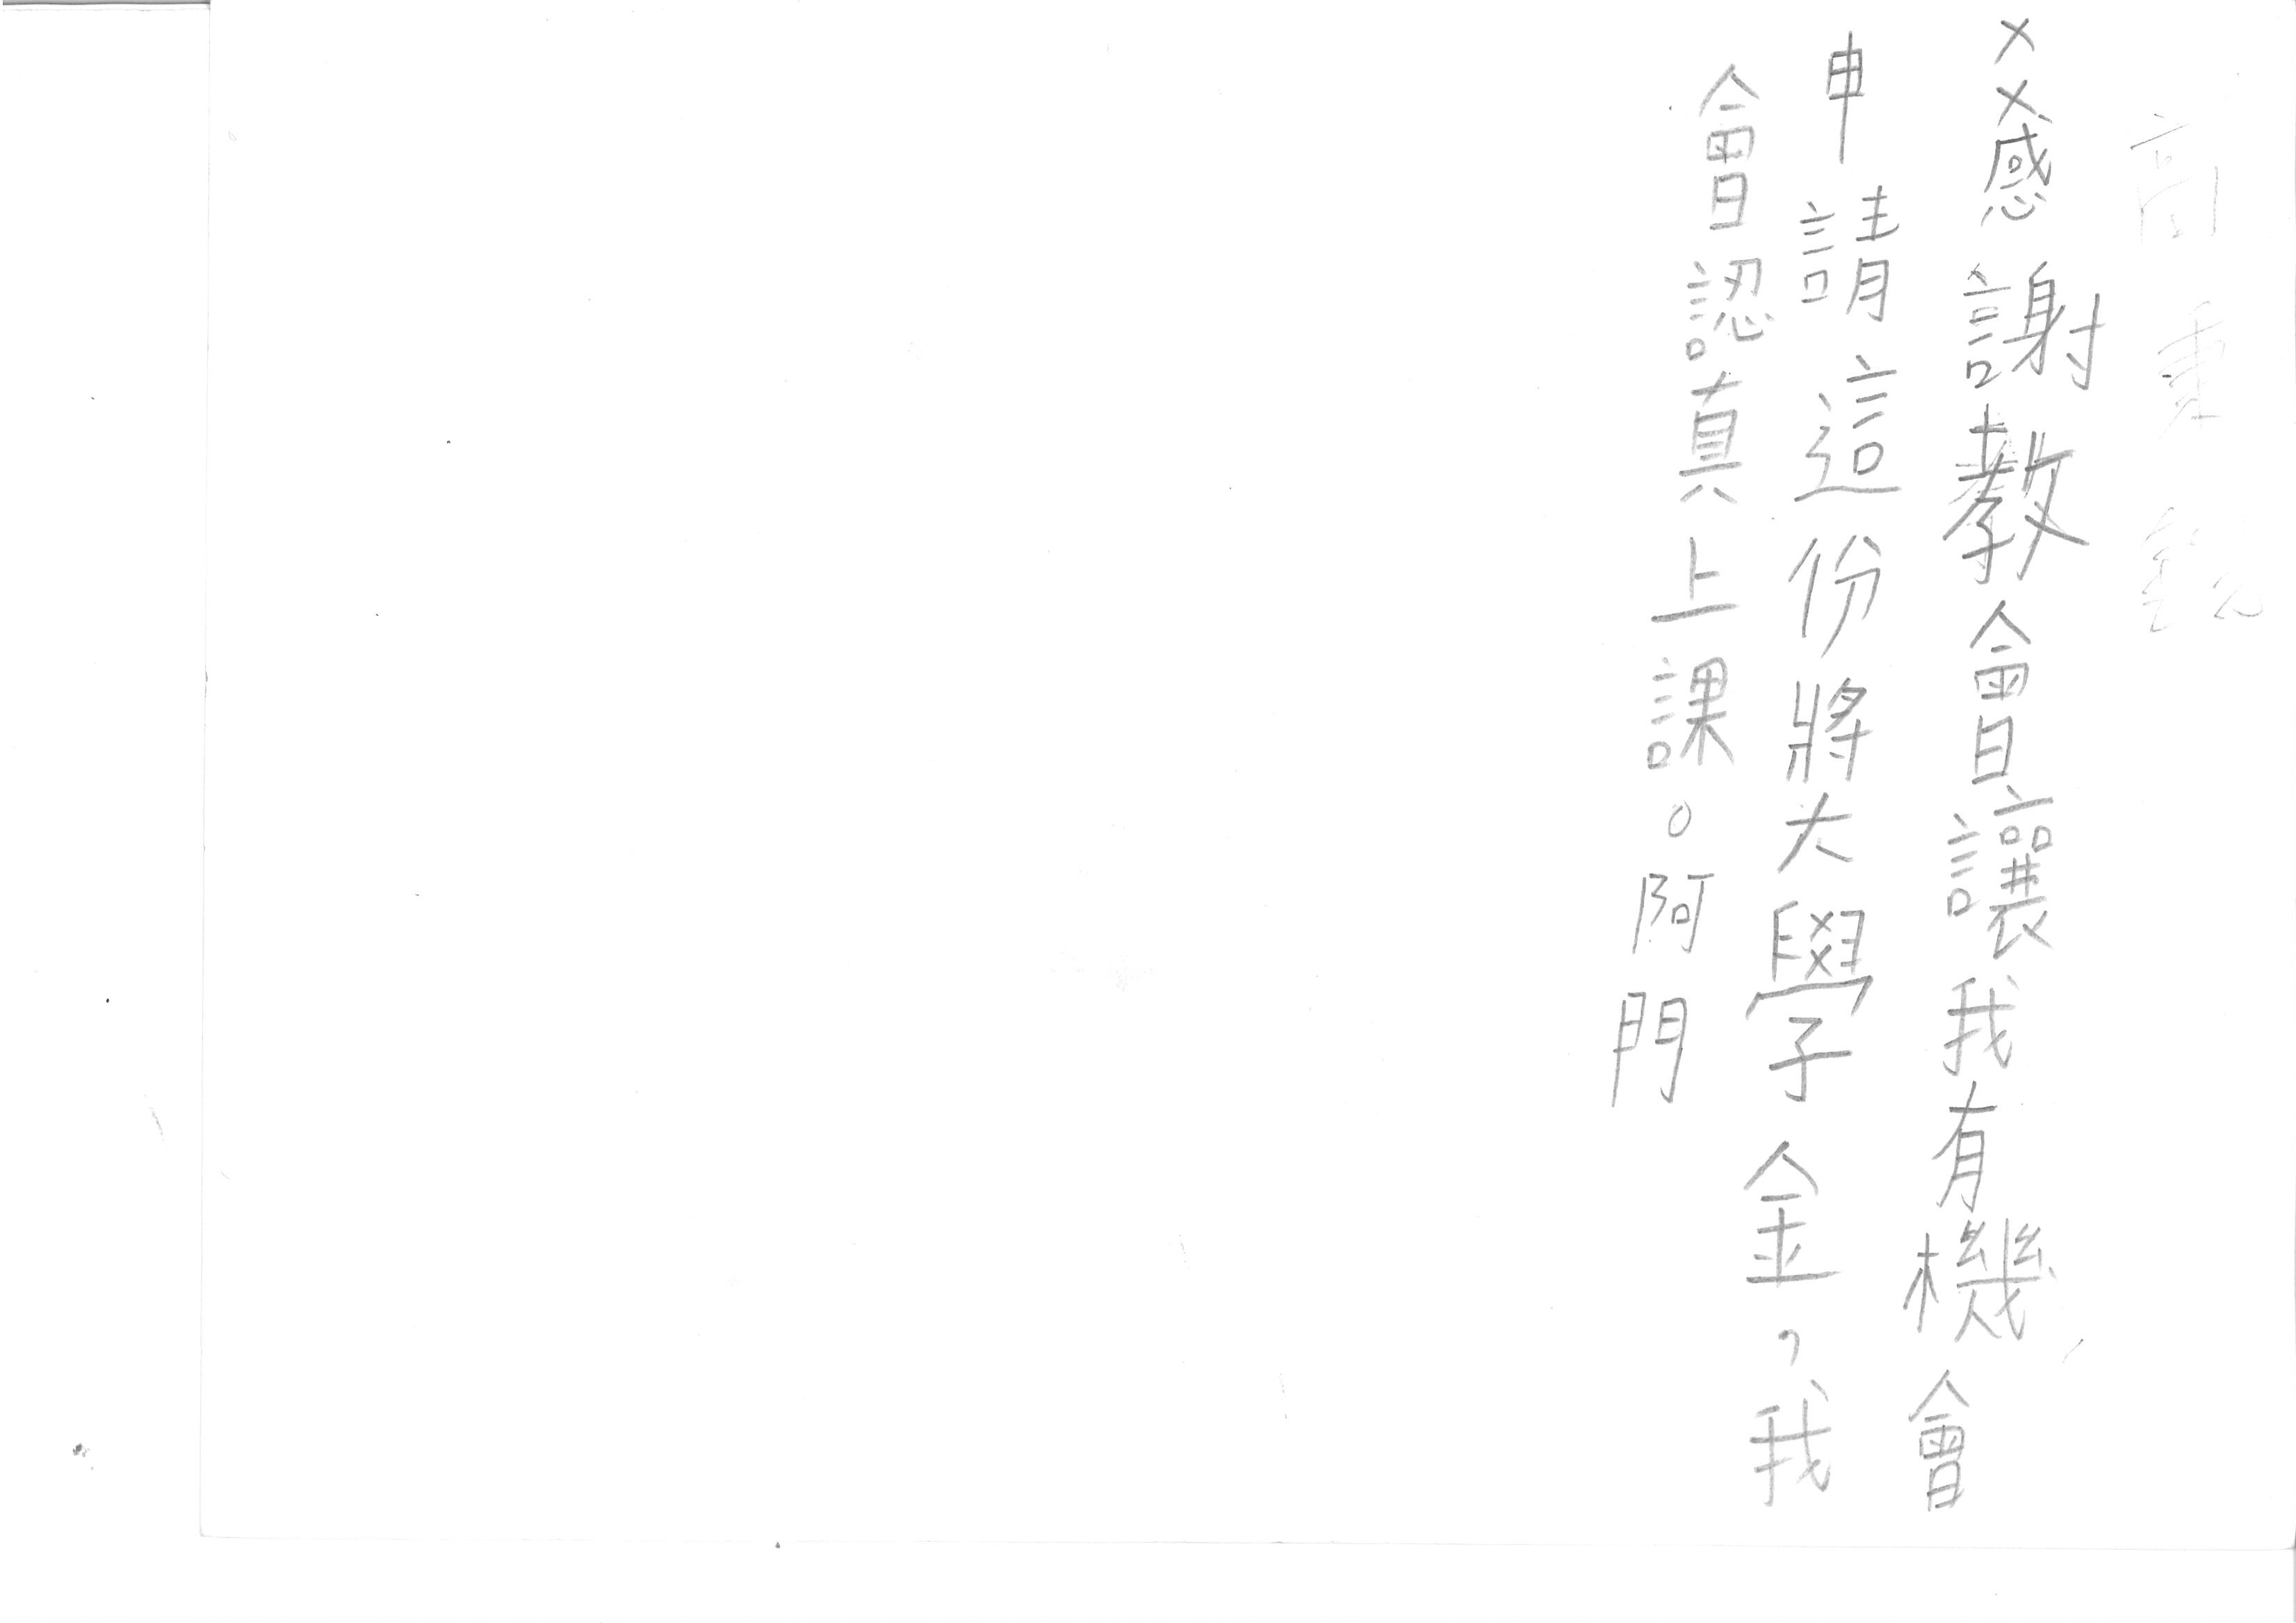 ××感謝教會讓我有機會
申請這份將大學金,我
會認真上課。阿門